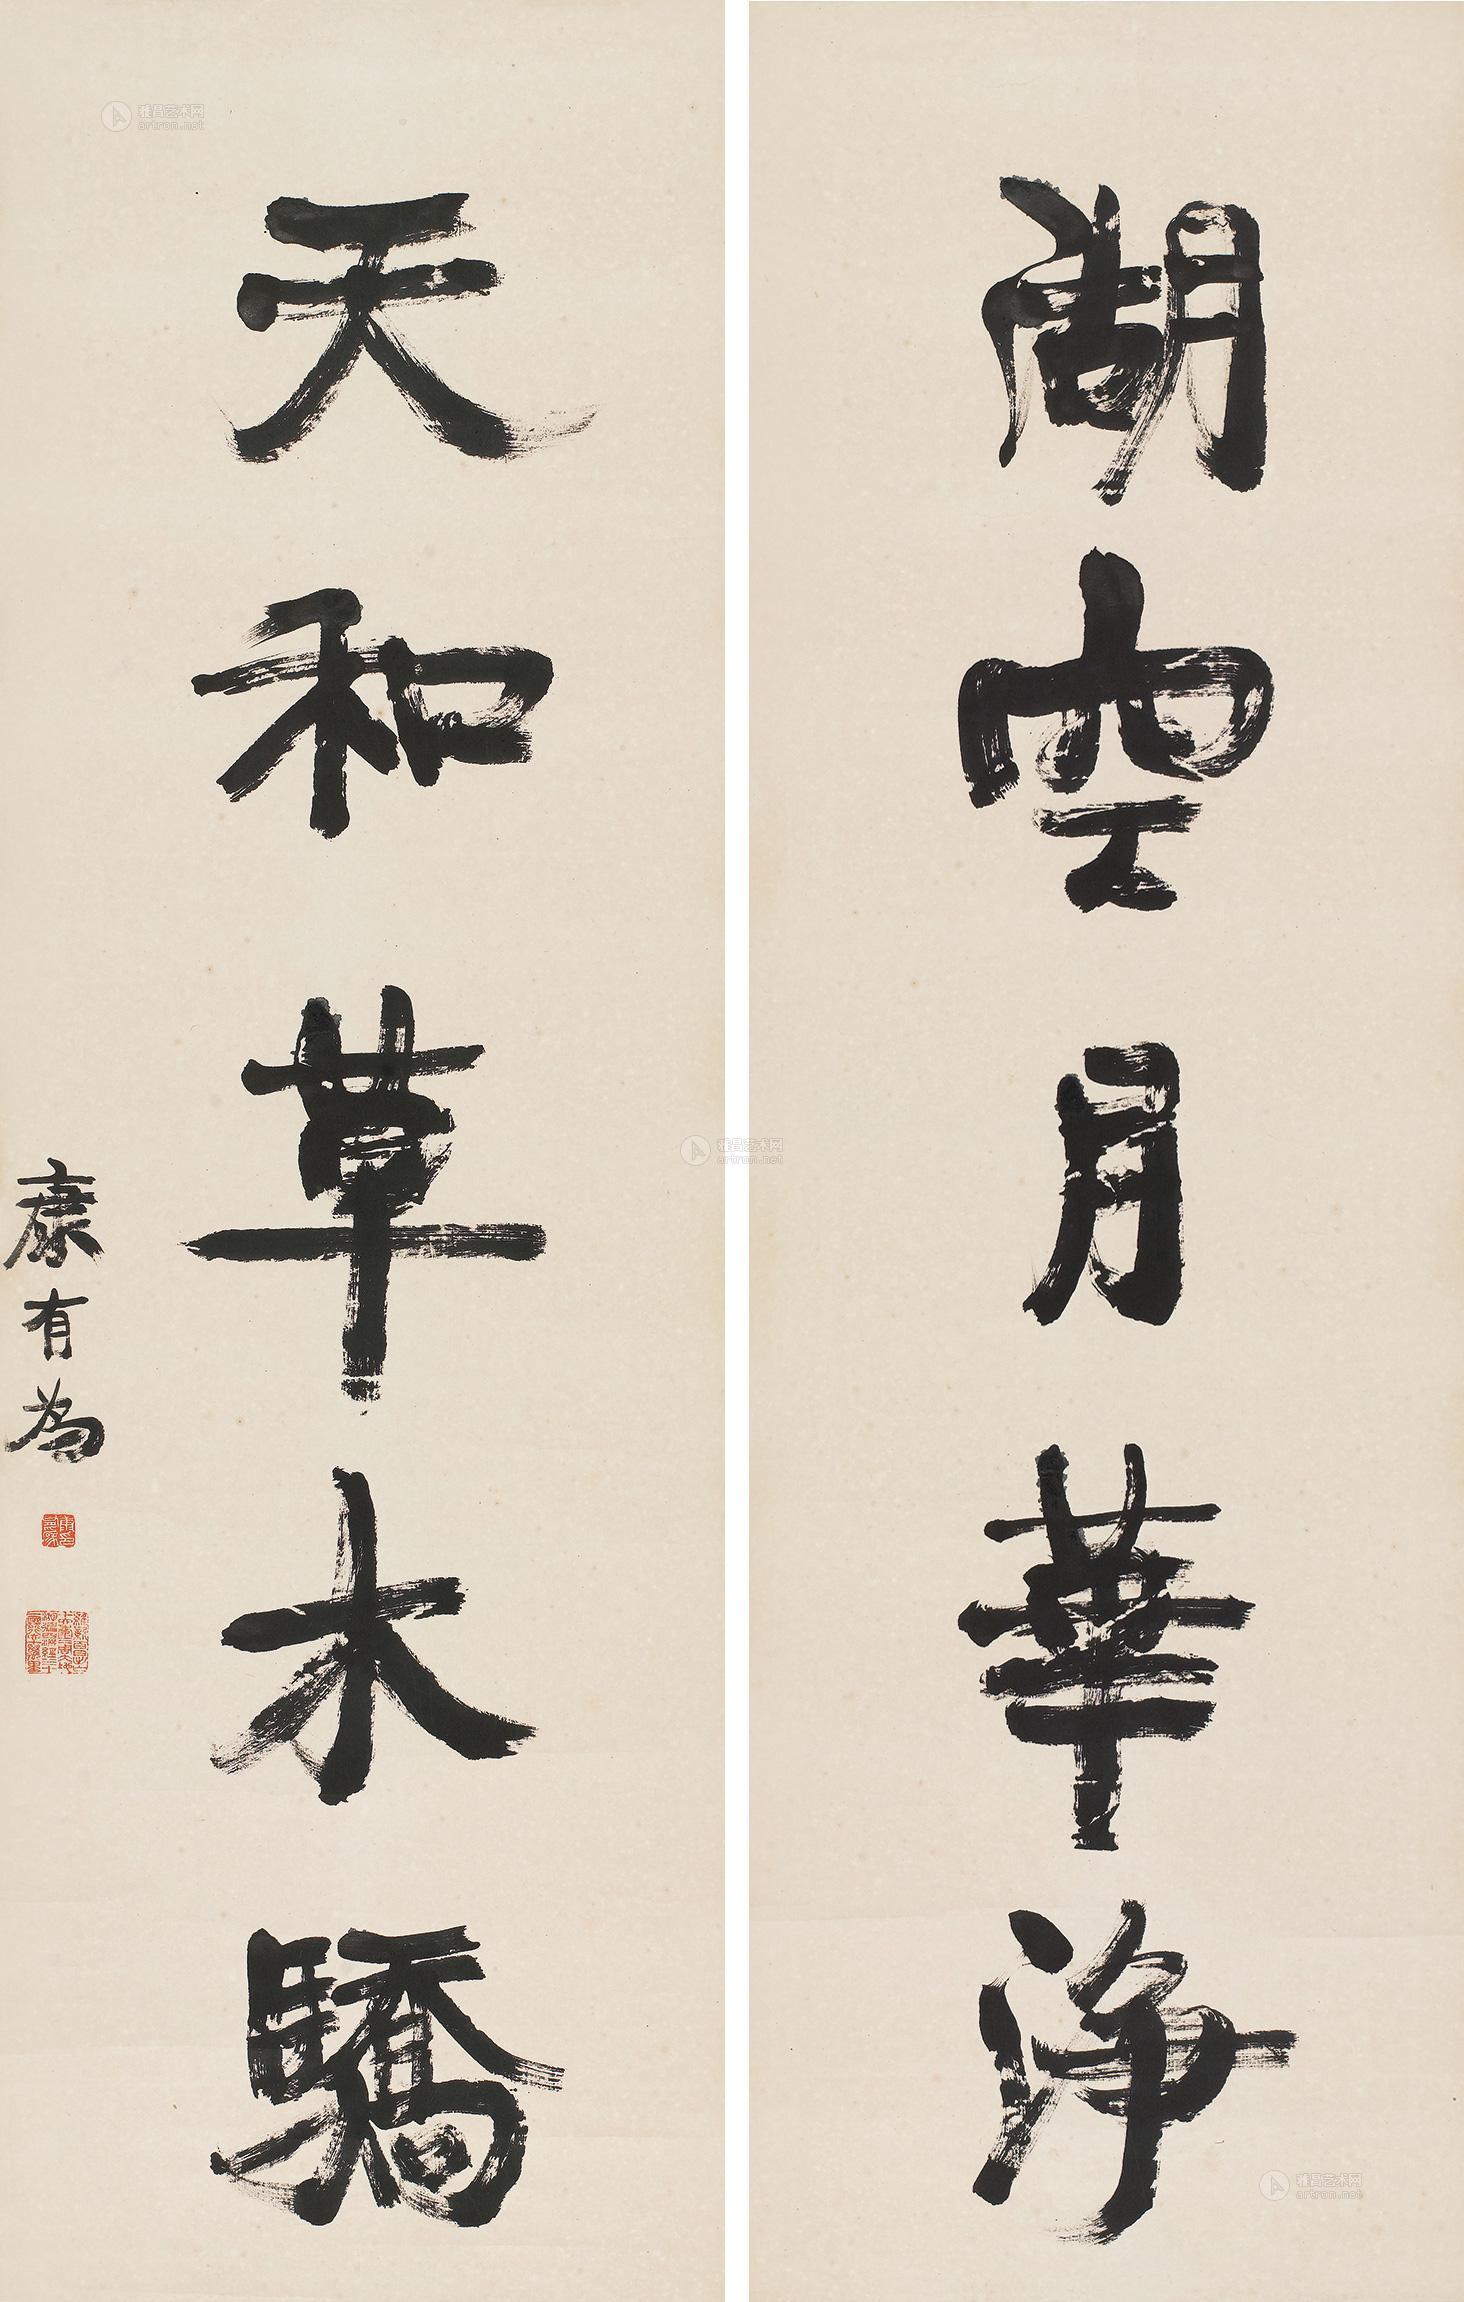 湖空月華淨
天和草木驕
康有為
雅昌艺术网
artron.net
雅昌艺术网
artron.net
雅昌艺术网
artron.net